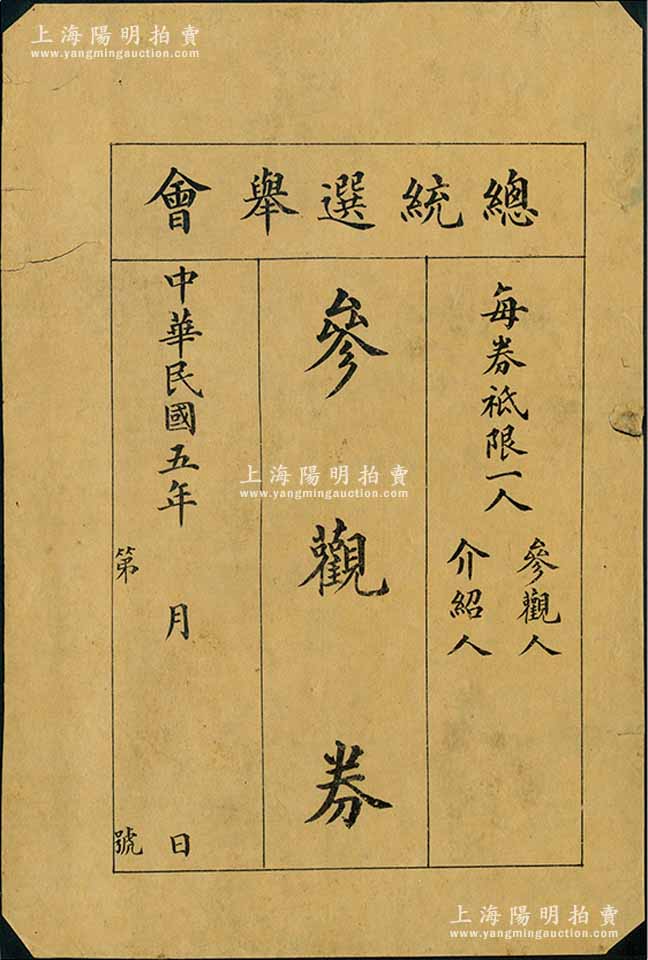 上海陽明拍賣
www.yangmingauction.com
總統選舉會
每券祗限一人
參觀人
介紹人
參觀券
中華民國五年 月 日
第 號
上海陽明拍賣
www.yangmingauction.com
上海陽明拍賣
www.yangmingauction.com